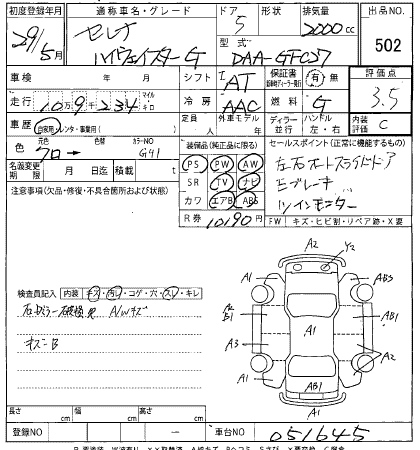 初度登録年月 通称車名・グレード ドア 形状 排気量 出品番号
29年 5月 セレナ 5 2000cc 502
ハイウェイスターG 型式 DAA-GFC27
車検 年 月 シフト AT 保証書 有・無 評価点 3.5
走行 10万9千234 マイル キロ 冷房 AAC 燃料 G
車歴 自家用・レンタ・事業用( ) 定員 人 外車モデル 年 ディーラー 並行 ハンドル 左・右 内装 C
色 元色 色替 カラーNO 装備品(純正品に限る) セールスポイント(正常に機能するもの)
クロ → G41 PS PW AW 左右オートスライドドア
名義変更期限 月 日迄 積載 t SR TV ナビ エブレーキ
注意事項(欠品・修復・不具合箇所および状態) カワ エアB ABS ツインモニター
R券 10190円 FW キズ・ヒビ割・リペア跡・X要
A2 Y2
A1 AB3
検査員記入 内装 キズ・汚レ・コゲ・穴・スレ・キレ
右ドラー破損 AWキズ
A2 B1 A1 A1
キズ-B
A3 A2
A1 AB1 A2
AB1
長さ cm 幅 cm 高さ cm
登録NO 車台NO 051645